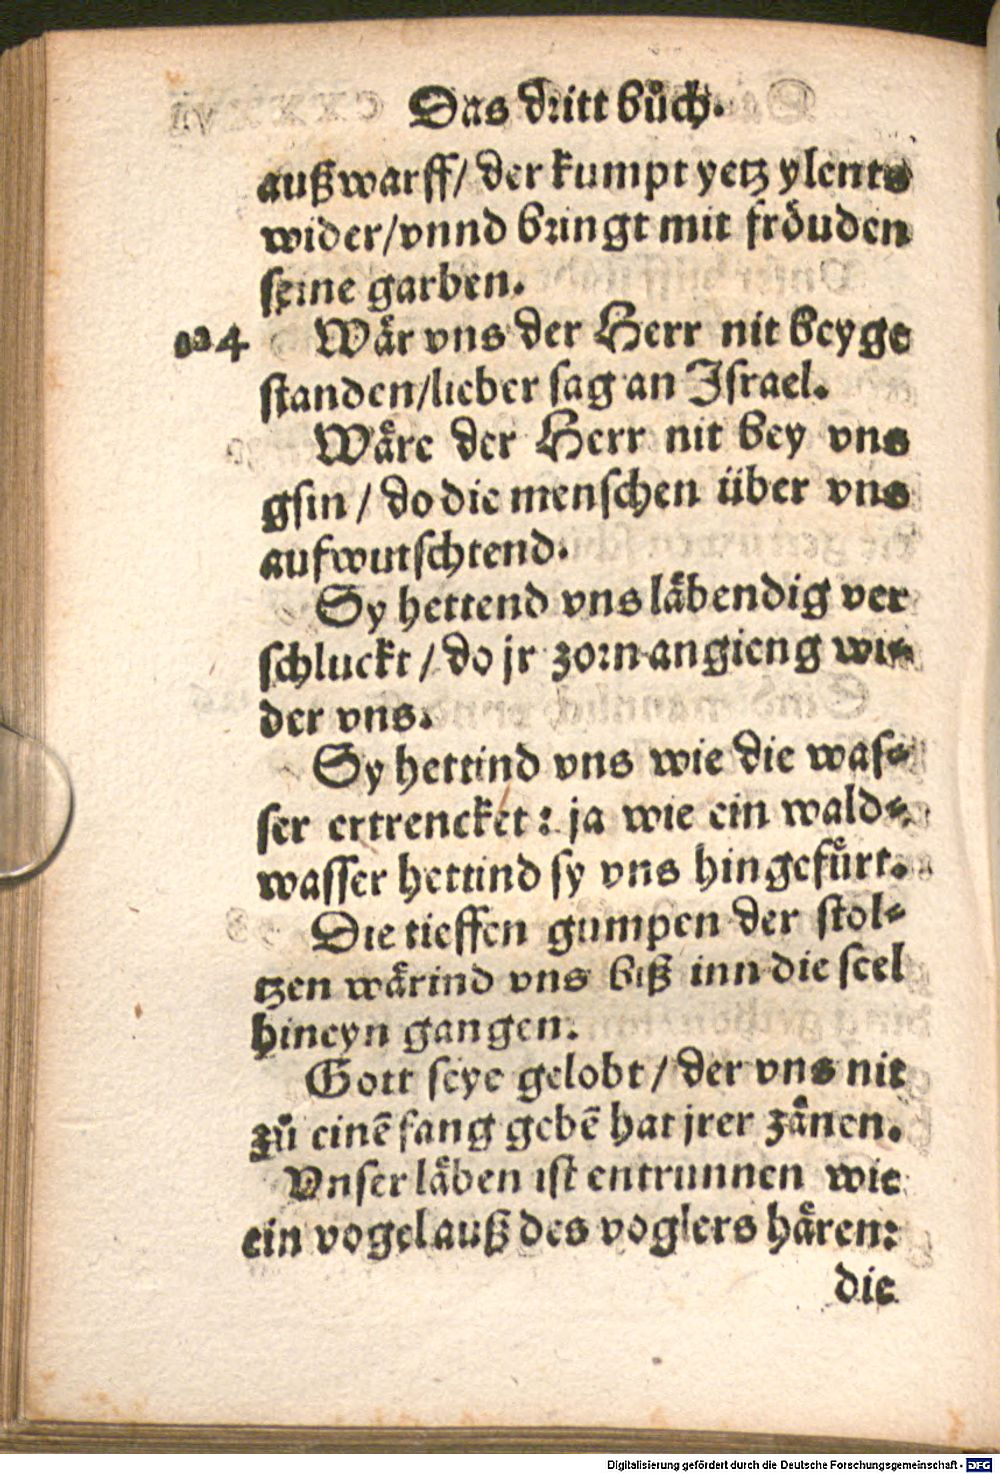 Das dritt bůch.
außwarff/ der kumpt yetz ylents
wider/vnnd bringt mit fröuden
seine garben.
124 Wår vns der Herr nit beyge
standen/lieber sag an Israel.
Wåre der Herr nit bey vns
gsin / do die menschen über vns
aufwutschtend.
Sy hettend vns låbendig ver
schluckt / do jr zorn angieng wi-
der vns.
Sy hettind vns wie die was-
ser ertrencket: ja wie ein wald-
wasser hettind sy vns hingefürt.
Die tieffen gumpen der stol-
tzen wårind vns biß inn die seel
hineyn gangen.
Gott seye gelobt / der vns nit
zů einē fang gebē hat jrer zånen.
Vnser låben ist entrunnen wie
ein vogel auß des voglers håren:
die
Digitalisierung gefördert durch die Deutsche Forschungsgemeinschaft - DFG